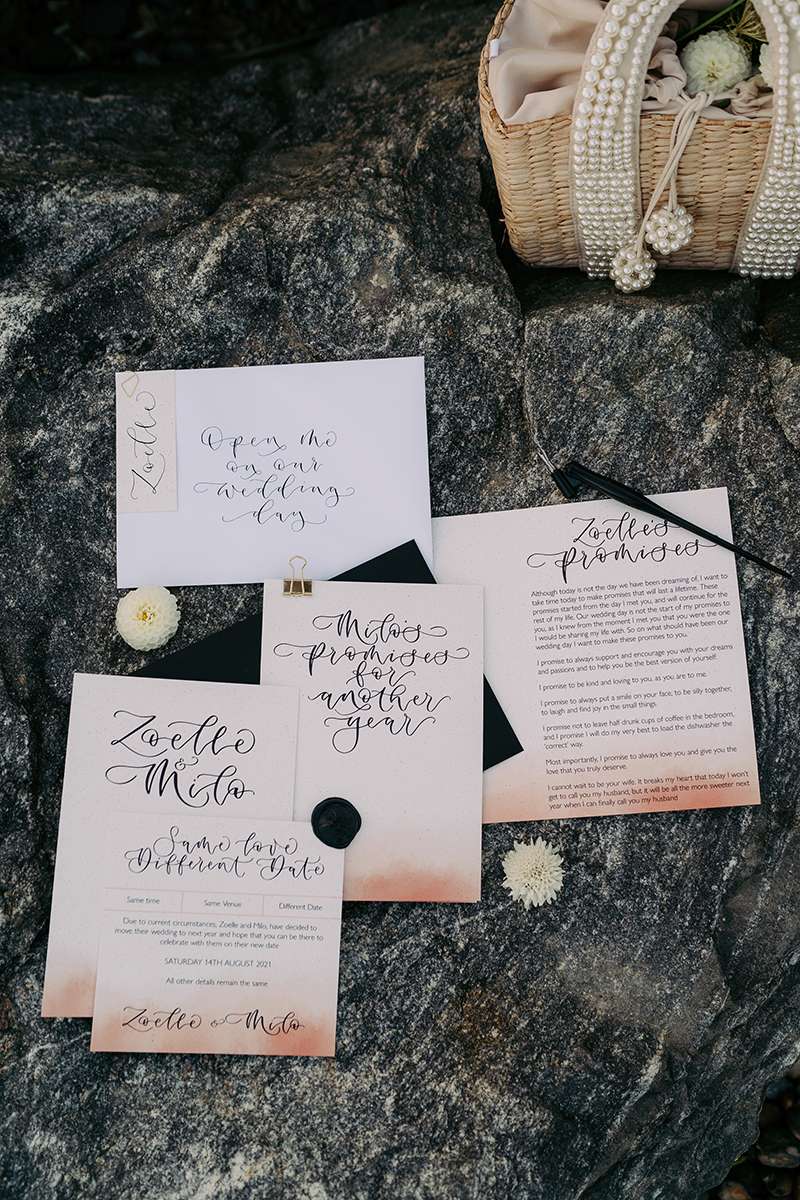 Zoelle
Open me
on our
wedding
day
Zoelle's
Promises
Although today is not the day we have been dreaming of, I want to
take time today to make promises that will last a lifetime. These
promises started from the day I met you, and will continue for the
rest of my life. Our wedding day is not the start of my promises to
you, as I knew from the moment I met you that you were the one
I would be sharing my life with. So on what should have been our
wedding day I want to make these promises to you.
I promise to always support and encourage you with your dreams
and passions and to help you be the best version of yourself.
I promise to be kind and loving to you, as you are to me.
I promise to always put a smile on your face, to be silly together,
to laugh and find joy in the small things.
I promise not to leave half drunk cups of coffee in the bedroom,
and I promise I will do my very best to load the dishwasher the
'correct' way.
Most importantly, I promise to always love you and give you the
love that you truly deserve.
I cannot wait to be your wife. It breaks my heart that today I won't
get to call you my husband, but it will be all the more sweeter next
year when I can finally call you my husband
Milo's
Promises
for
another
year
Zoelle
&
Milo
Same love
Different Date
Same time Same Venue Different Date
Due to current circumstances, Zoelle and Milo, have decided to
move their wedding to next year and hope that you can be there to
celebrate with them on their new date
SATURDAY 14TH AUGUST 2021
All other details remain the same
Zoelle & Milo